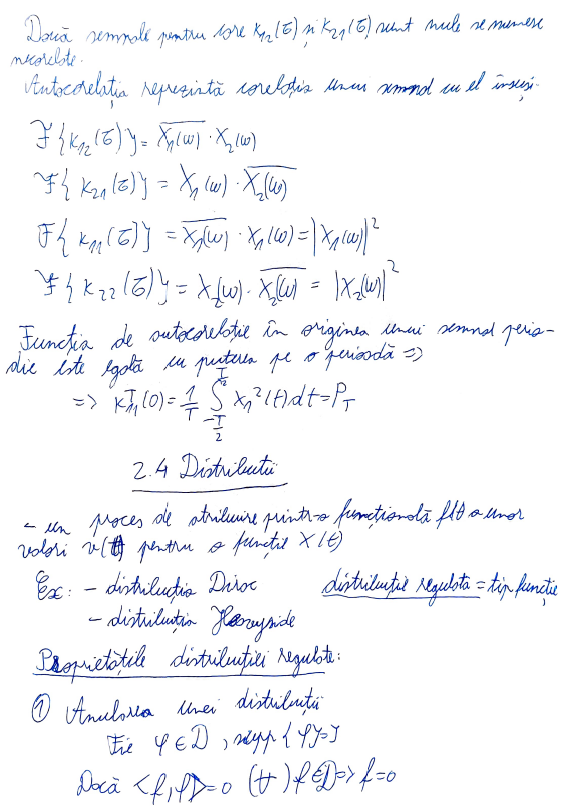 Două semnale pentru care K₁₂(τ) și K₂₁(τ) sunt nule se numesc
necorelate.
Autocorelația reprezintă corelația unui semnal cu el însuși.
F{K₁₂(τ)} = \overline{X₁(ω)} · X₂(ω)
F{K₂₁(τ)} = X₁(ω) · \overline{X₂(ω)}
F{K₁₁(τ)} = \overline{X₁(ω)} · X₁(ω) = |X₁(ω)|²
F{K₂₂(τ)} = X₂(ω) · \overline{X₂(ω)} = |X₂(ω)|²
Funcția de autocorelație în originea unui semnal perio-
dic este egală cu puterea pe o perioadă =>
=> K₁₁ᵀ(0) = 1/T ∫_{-T/2}^{T/2} x₁²(t)dt = P_T
2.4 Distribuții
- un proces de atribuire printr-o funcțională f(t) a unor
valori v(t) pentru o funcție X(t)
Ex: - distribuția Dirac distribuție regulată = tip funcție
- distribuția Heavyside
Proprietățile distribuției regulate:
① Anularea unei distribuții
Fie φ ∈ D, supp{φ}=J
Dacă <f,φ>=0 (∀) f∈D => f=0